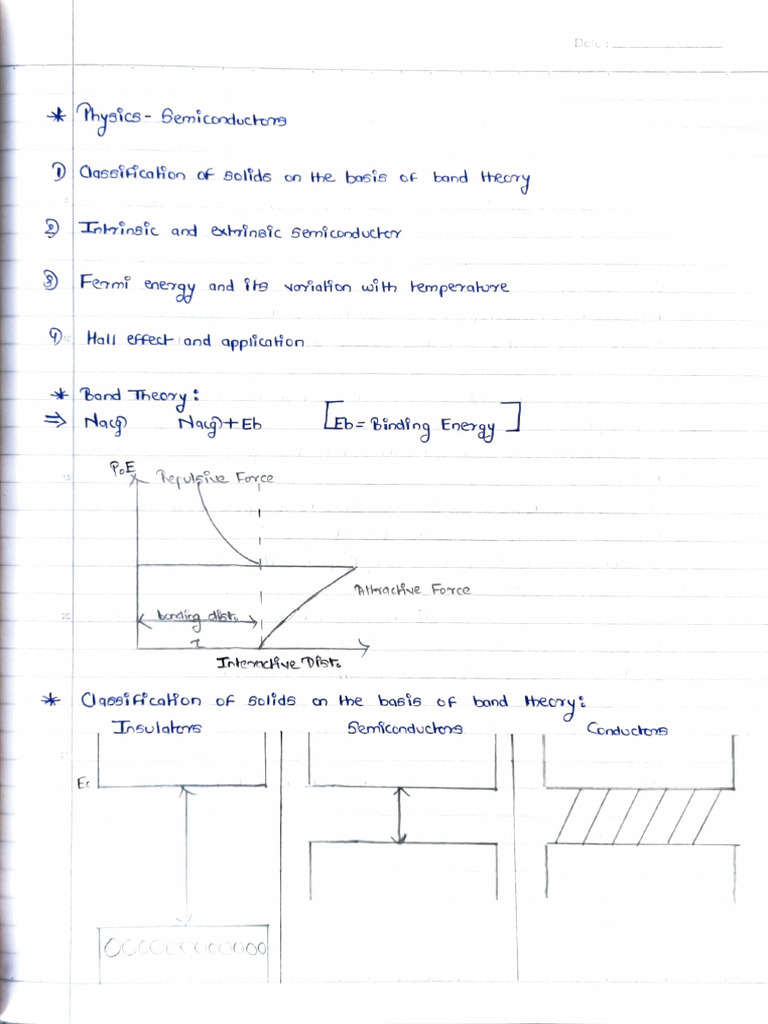 Date :
* Physics - Semiconductors
1) Classification of solids on the basis of band theory
2) Intrinsic and extrinsic semiconductor
3) Fermi energy and its variation with temperature
4) Hall effect and application
* Band Theory :
⇒ Na(g) Na(g) + Eb [Eb = Binding Energy]
P.E
Repulsive Force
15
Attractive Force
20
bonding dist.
Interactive Dist.
* Classification of solids on the basis of band theory :
Insulators Semiconductors Conductors
Ec